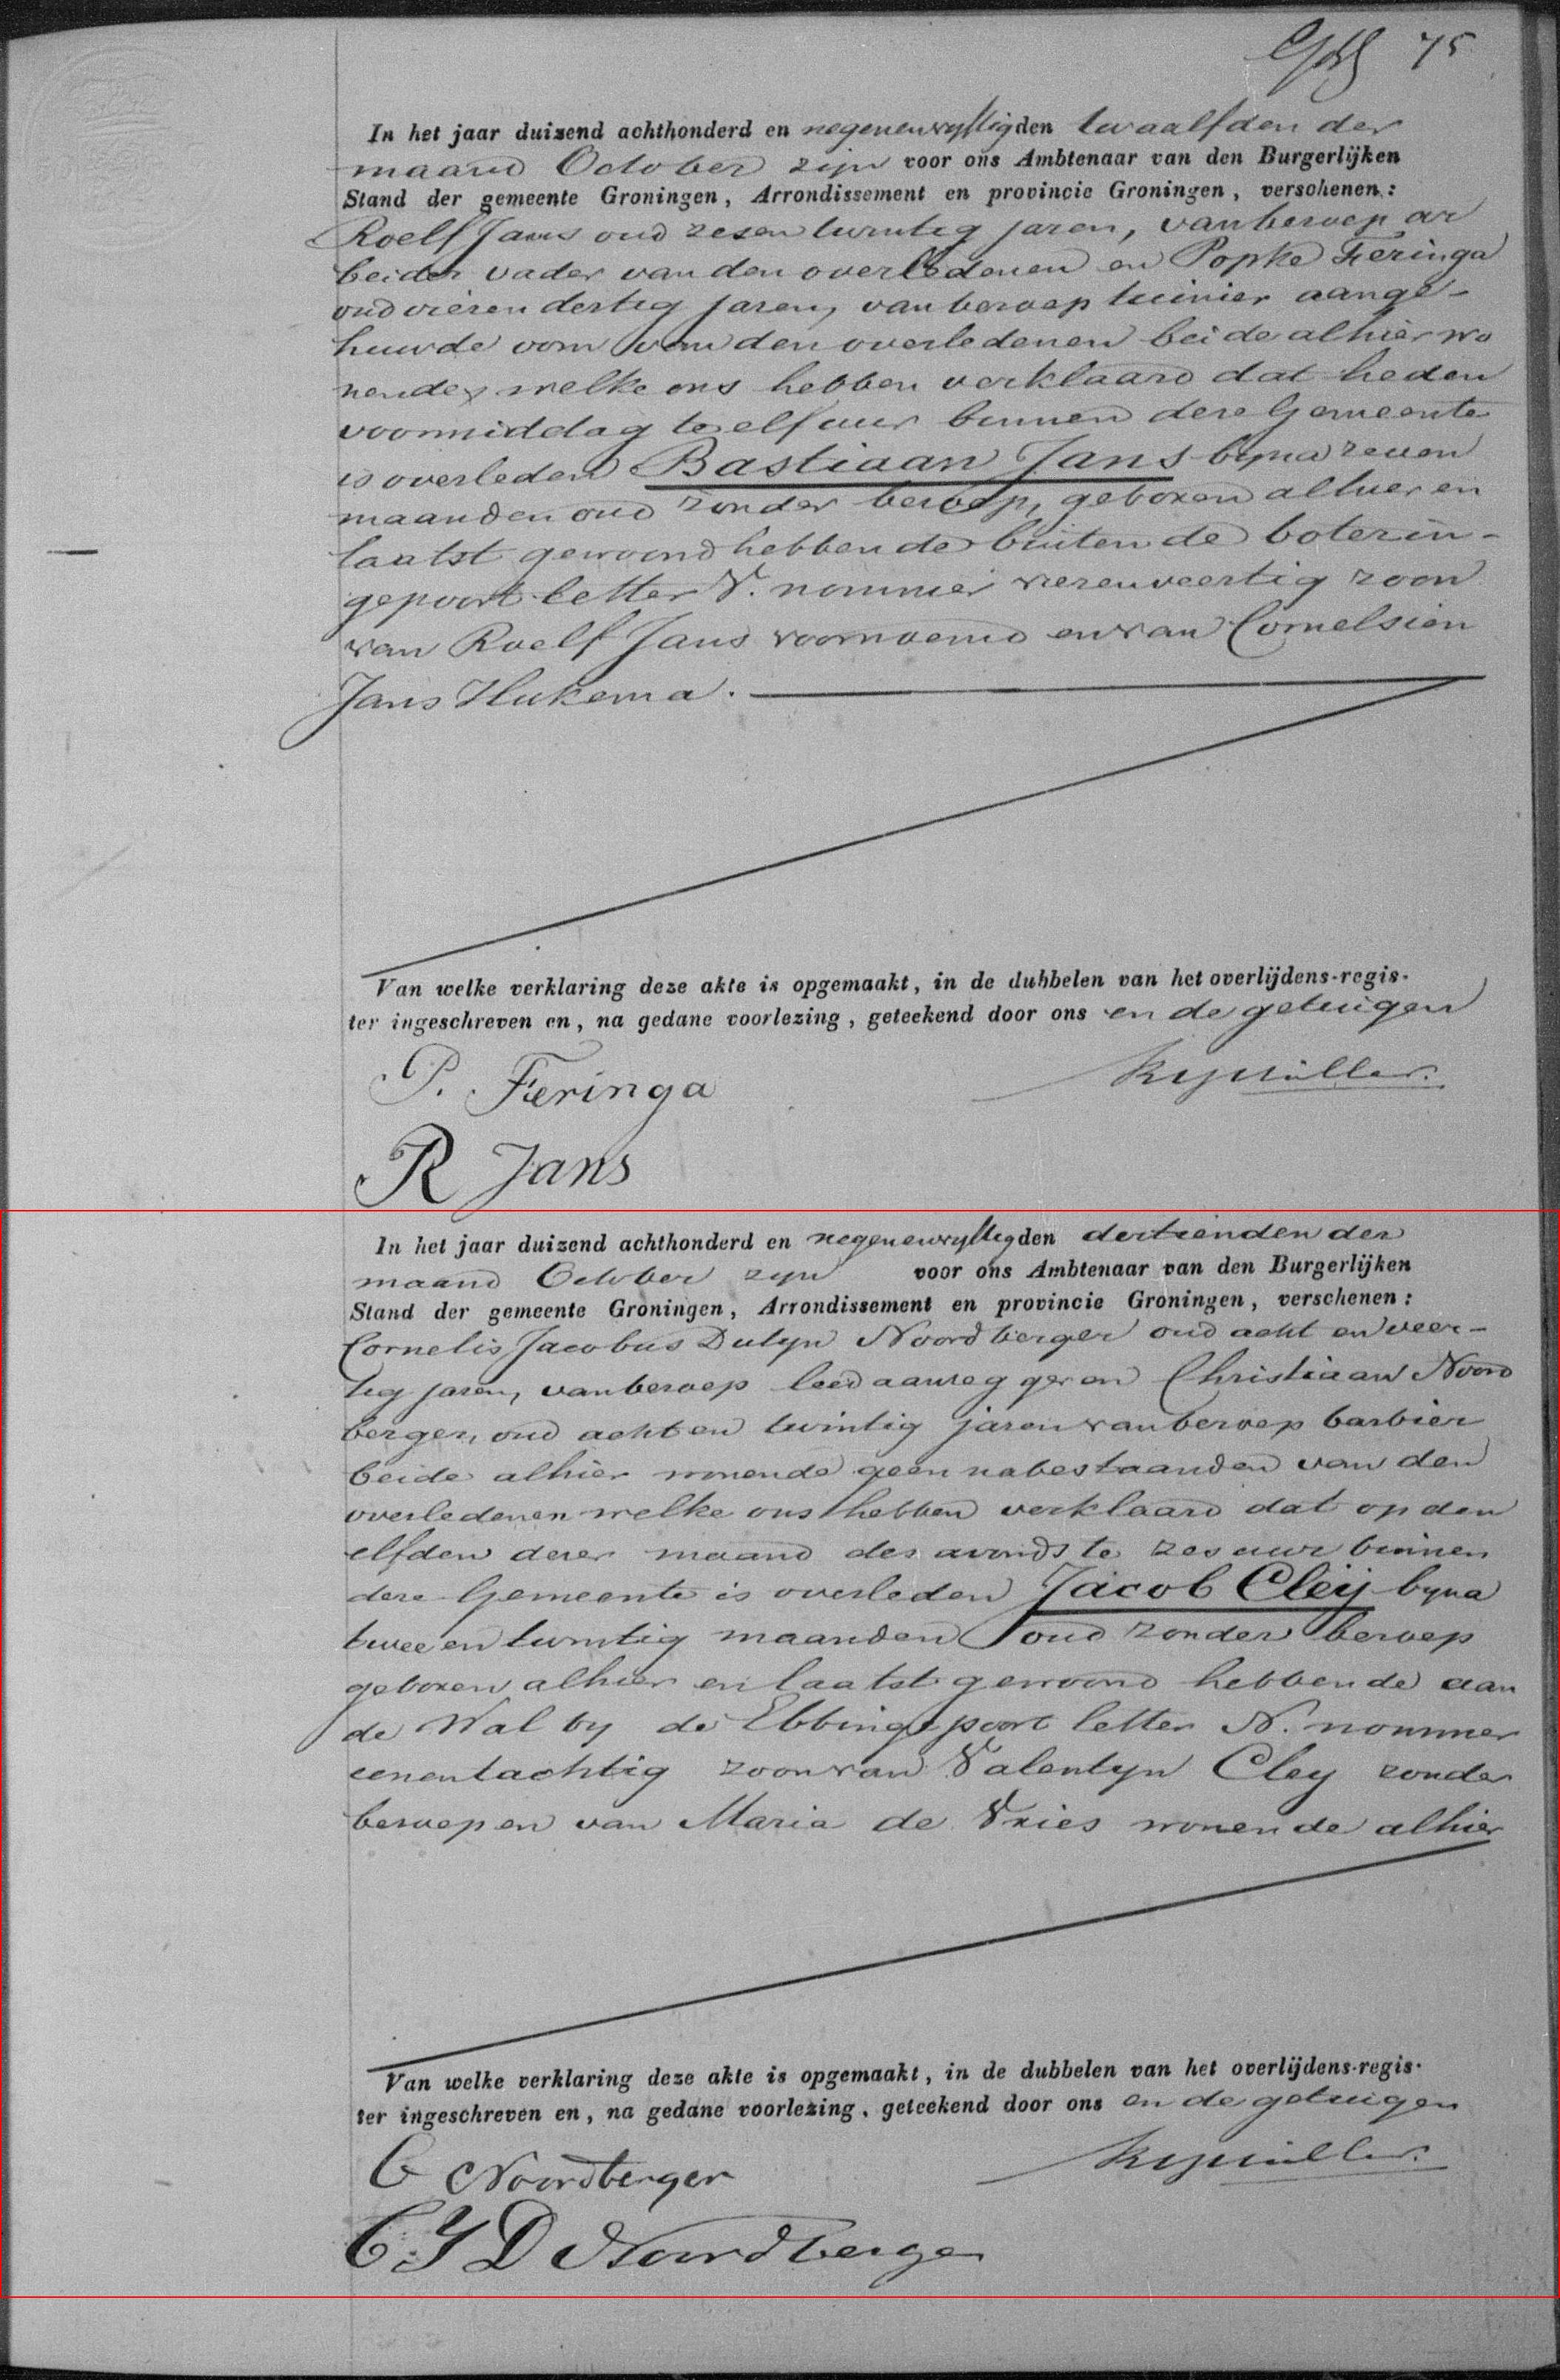 75
In het jaar duizend achthonderd en negenenvyftig den twaalfden der
maand October zijn voor ons Ambtenaar van den Burgerlijken
Stand der gemeente Groningen, Arrondissement en provincie Groningen, verschenen:
Roelf Jans oud zesentwintig jaren, van beroep ar
beider vader van den overledenen en Popke Feringa
oud vierendertig jaren, van beroep tuinier aange-
huwde oom van den overledenen beide alhier wo
nende, welke ons hebben verklaard dat heden
voormiddag te elf uur binnen deze Gemeente
is overleden Bastiaan Jans byna zeven
maanden oud zonder beroep, geboren alhier en
laatst gewoond hebbende buiten de boterin-
gepoort letter V. nommer vierenveertig zoon
van Roelf Jans voornoemd en van Cornelsien
Jans Hukema.
Van welke verklaring deze akte is opgemaakt, in de dubbelen van het overlijdens-regis-
ter ingeschreven en, na gedane voorlezing, geteekend door ons en de getuigen
P. Feringa
R Jans
In het jaar duizend achthonderd en negenenvyftig den dertienden der
maand October zyn voor ons Ambtenaar van den Burgerlijken
Stand der gemeente Groningen, Arrondissement en provincie Groningen, verschenen:
Cornelis Jacobus Dutyn Noordberger oud acht en veer-
tig jaren, van beroep leedaanzegger en Christiaan Noord
berger, oud acht en twintig jaren van beroep barbier
beide alhier wonende geen nabestaanden van den
overledenen welke ons hebben verklaard dat op den
elfden dezer maand des avonds te zes uur binnen
deze Gemeente is overleden Jacob Cleij byna
twee en twintig maanden oud zonder beroep
geboren alhier en laatst gewoond hebbende aan
de Wal by de Ebbingepoort letter N. nommer
eenentachtig zoon van Valentyn Cley zonder
beroep en van Maria de Vries wonende alhier
Van welke verklaring deze akte is opgemaakt, in de dubbelen van het overlijdens-regis-
ter ingeschreven en, na gedane voorlezing, geteekend door ons en de getuigen
C Noordberger
C. J D Noordberger